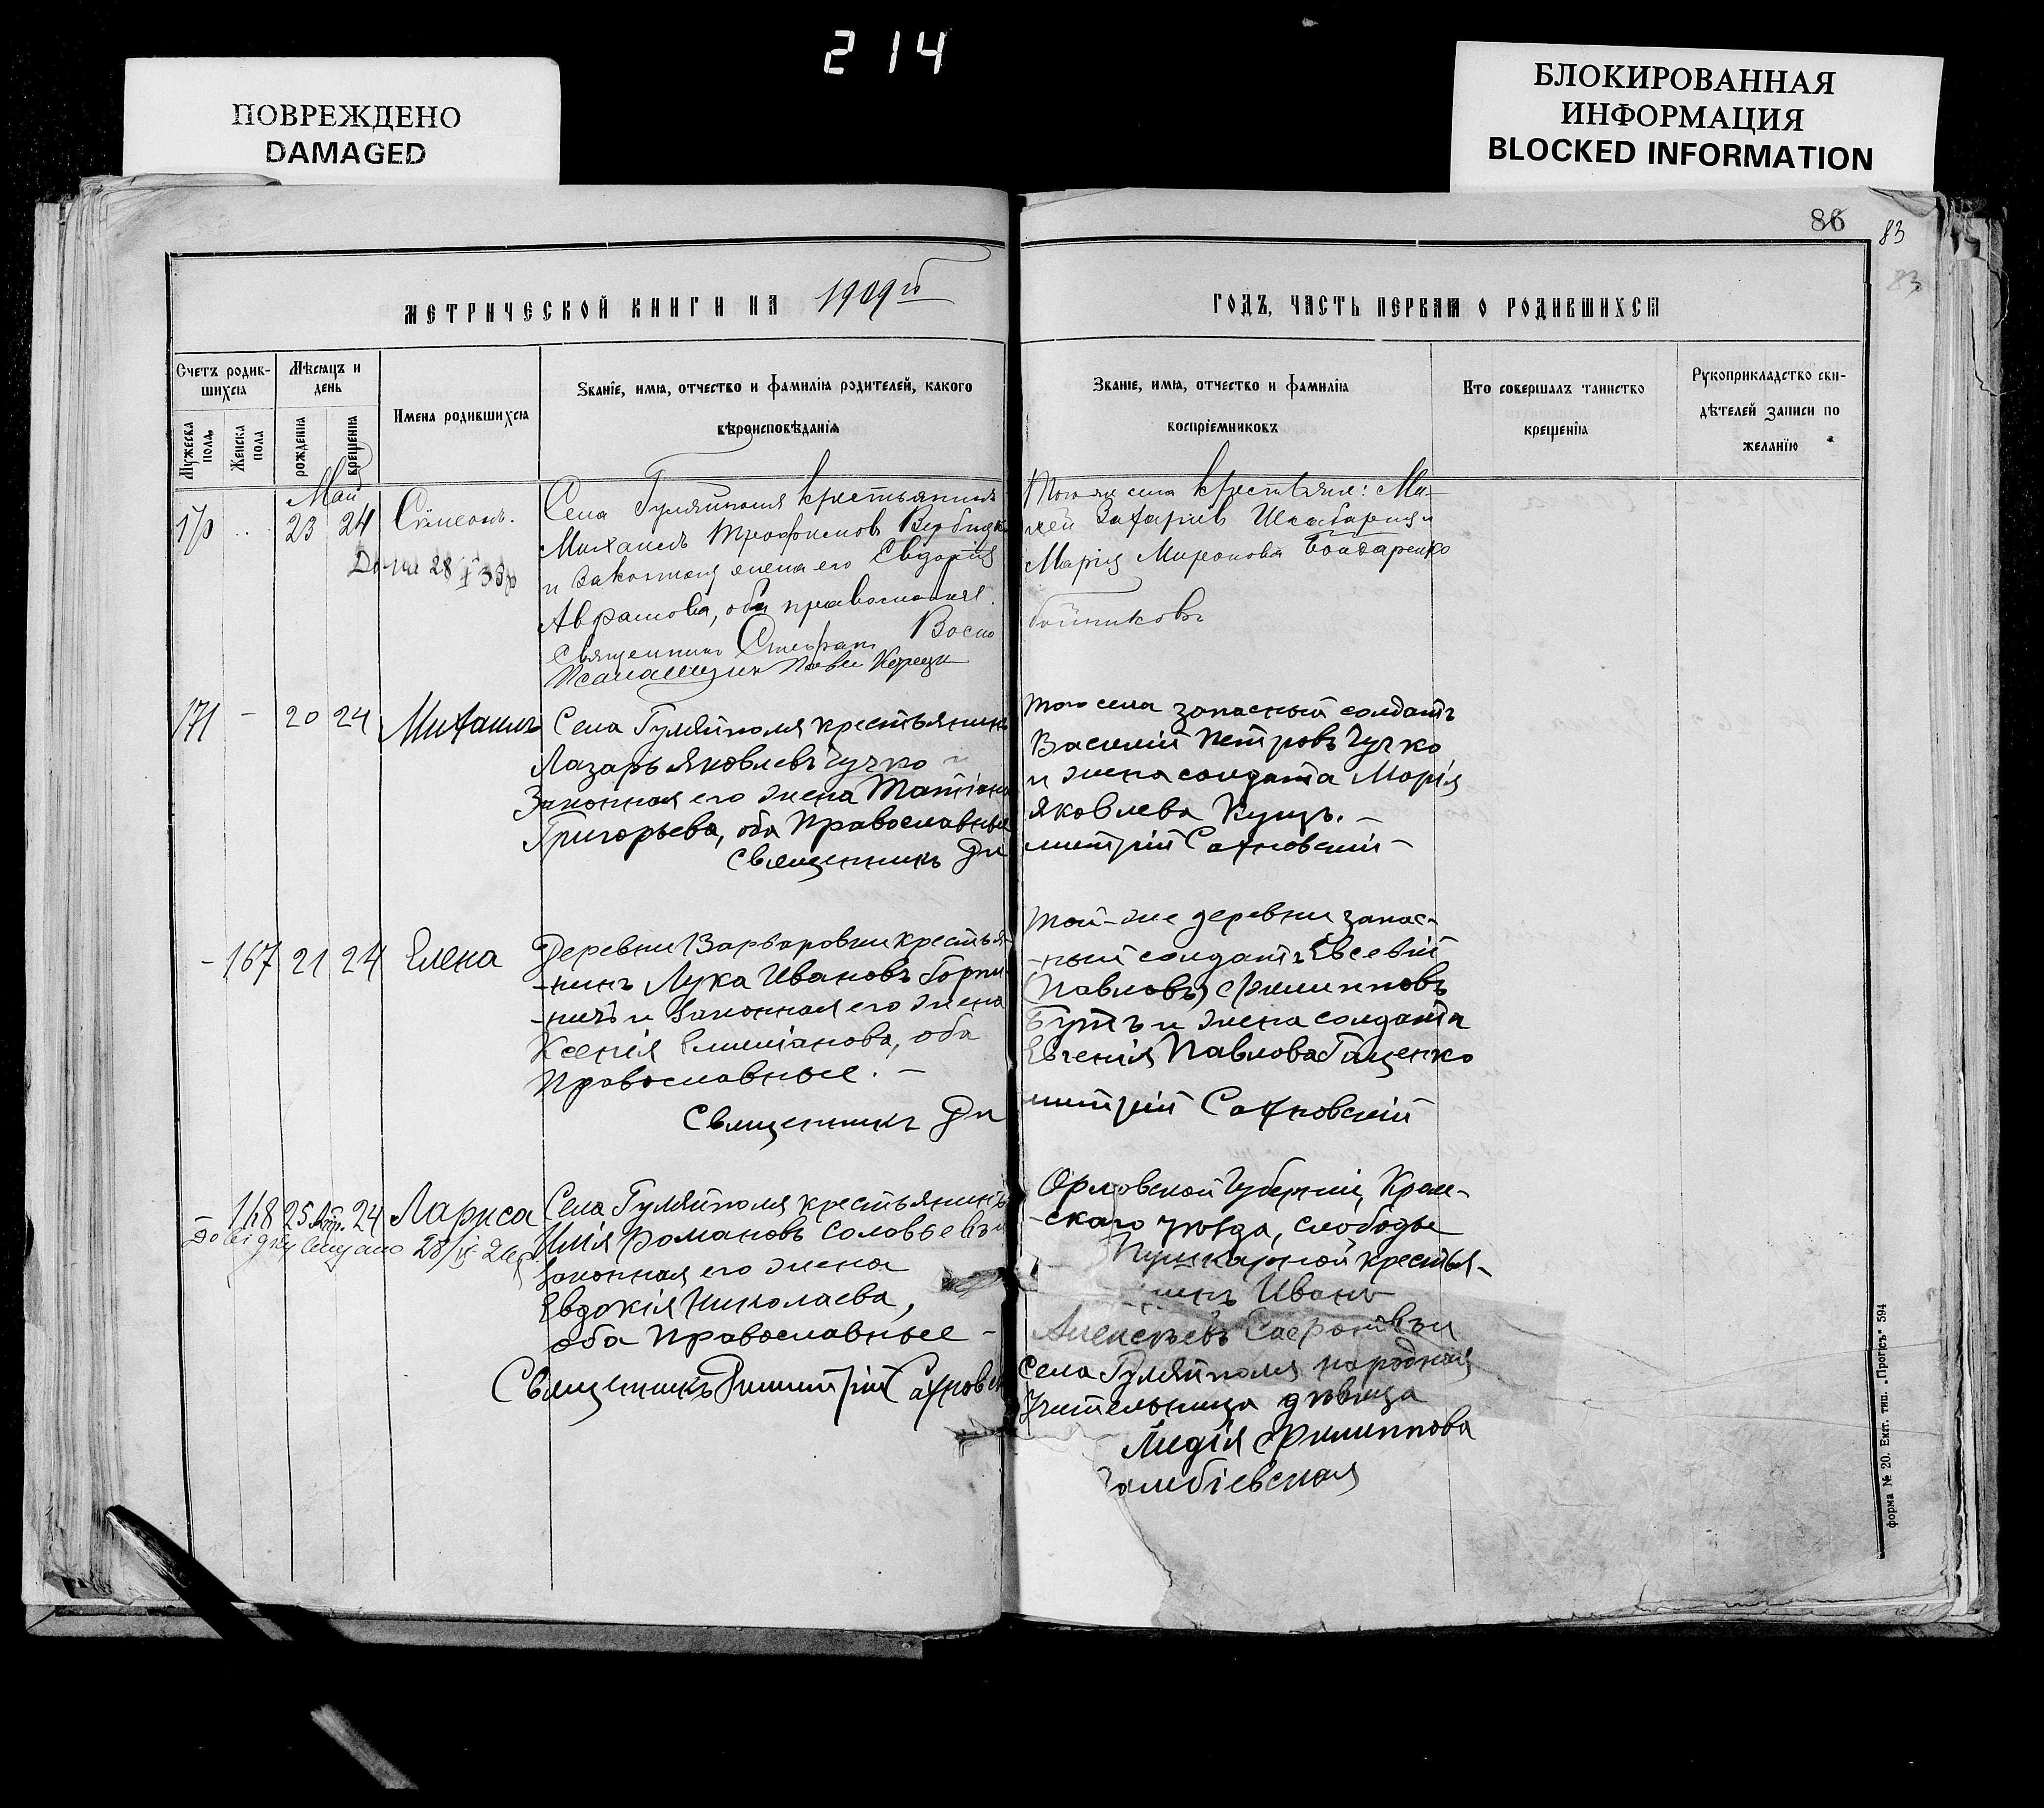 214
ПОВРЕЖДЕНО
DAMAGED
БЛОКИРОВАННАЯ
ИНФОРМАЦИЯ
BLOCKED INFORMATION
86
83
83
МЕТРИЧЕСКОЙ КНИГИ НА 1909 го
ГОДЪ, ЧАСТЬ ПЕРВАЯ О РОДИВШИХСЯ
Счетъ родив-
шихся
Мужеска
пола
Женска
пола
Мѣсяцъ и
день
рожденія
крещенія
Имена родившихся
Званіе, имя, отчество и фамилія родителей, какого
вѣроисповѣданія
Званіе, имя, отчество и фамилія
воспріемниковъ
Кто совершалъ таинство
крещенія
Рукоприкладство сви-
дѣтелей записи по
желанію
Май
170 .. 23 24 Сѵмеонъ.
28
Села Гуляйполя крестьянинъ
Михаилъ Трофимов
и законная жена его Евдокія
Аврамова, оба православные.
Священникъ Стефан Воско
Псаломщикъ Павел
Того же села крестьяне: Ми-
хей Захаріев
Марія Миронова Бондаренко
бойниковъ
171 - 20 24 Михаилъ
Села Гуляйполя крестьянинъ
Лазарь Яковлевъ Гучко и
Законная его жена Татіана
Григорьева, оба Православные
Священникъ Ди
Того села запасный солдатъ
Василій Петровъ Гучко
и жена солдата Марія
Яковлева Куцъ. -
митрій Сахновскій -
- 167 21 24 Елена
Деревни Варваровки крестья-
-нинъ Лука Ивановъ
и законная его жена
Ксенія Емиліанова, оба
Православные. -
Священникъ Ди
Той-же деревни запас-
-ный солдатъ Евсевій
(Павловъ) Филипповъ
Бутъ и жена солдата
Евгенія Павлова Гаценко
митрій Сахновскій
- 168 25 Апр. 24 Лариса
Села Гуляйполя крестьянинъ
Илія Романовъ Соловьевъ и
законная его жена
Евдокія Николаева,
оба Православные -
Священникъ Димитрій Сахновск
Орловской Губерніи, Кром-
-скаго уѣзда, слободы
Пушкарной крестья-
нинъ Иванъ
Алексѣевъ Сафоновъ и
Села Гуляйполя народная
Учительница дѣвица
Лидія Филиппова
форма № 20. Екат. тип. „Прогрсъ“ 594